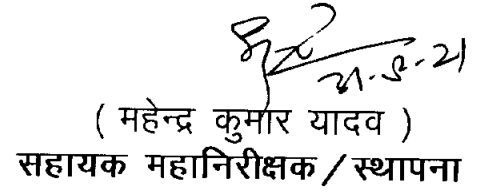 ( महेन्द्र कुमार यादव )
सहायक महानिरीक्षक / स्थापना